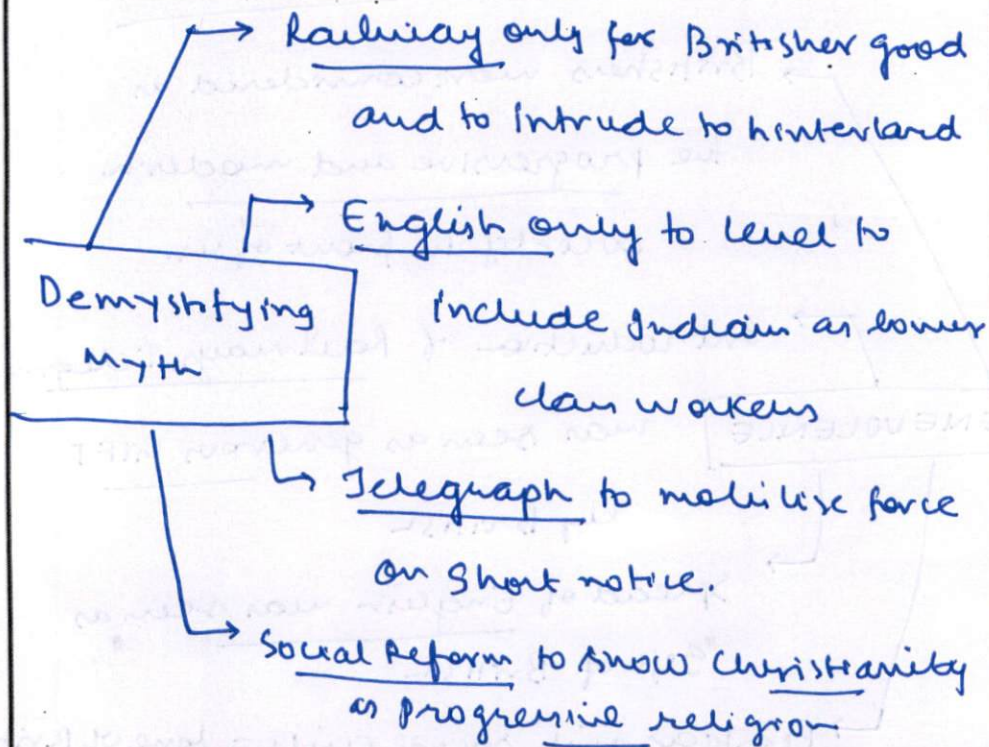 Railway only for Britisher good
and to intrude to hinterland
English only to level to
Demystifying
include Indian as lower
Myth
class workers
Telegraph to mobilise force
on short notice.
Social Reform to show Christianity
as progressive religion